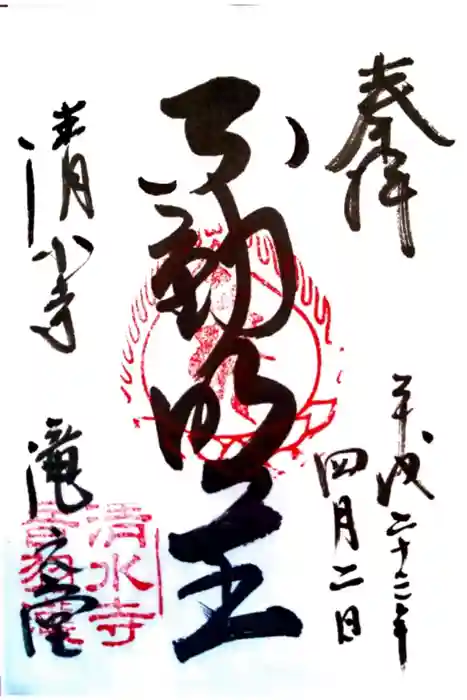 奉拝
平成二十三年
四月二日
不動明王
清水寺 瀧之堂
清水寺